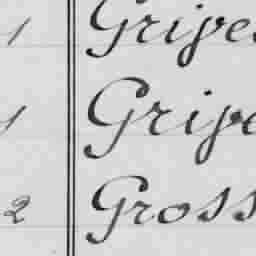 1 Gripe
1 Gripe
2 Gross